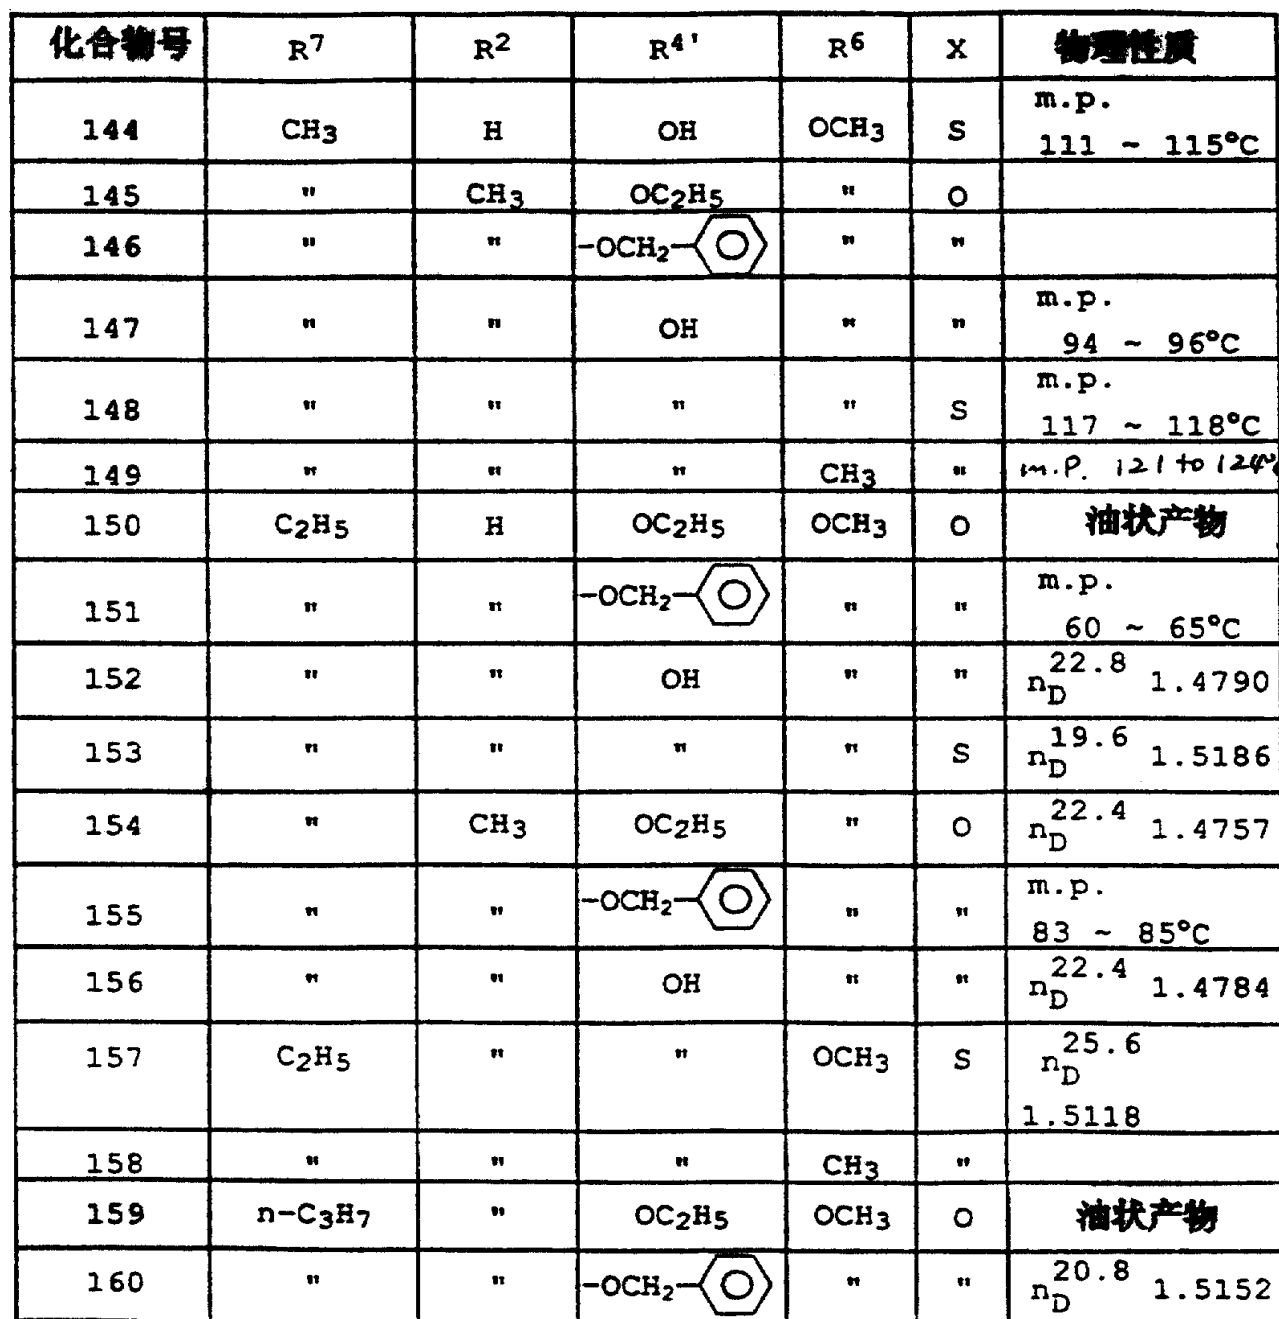 化合物号 R7 R2 R4' R6 X 物理性质
m.p.
144 CH3 H OH OCH3 S 111 ~ 115°C
145 " CH3 OC2H5 " O
146 " " -OCH2- " "
m.p.
147 " " OH " " 94 ~ 96°C
m.p.
148 " " " " S 117 ~ 118°C
149 " " " CH3 " m.p. 121 to 124°C
150 C2H5 H OC2H5 OCH3 O 油状产物
m.p.
151 " " -OCH2- " " 60 ~ 65°C
152 " " OH " " nD22.8 1.4790
153 " " " " S nD19.6 1.5186
154 " CH3 OC2H5 " O nD22.4 1.4757
m.p.
155 " " -OCH2- " " 83 ~ 85°C
156 " " OH " " nD22.4 1.4784
157 C2H5 " " OCH3 S nD25.6
1.5118
158 " " " CH3 "
159 n-C3H7 " OC2H5 OCH3 O 油状产物
160 " " -OCH2- " " nD20.8 1.5152